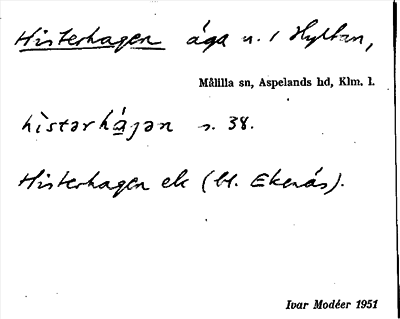 Histerhagen äga u. / Hyltan,
Målilla sn, Aspelands hd, Klm. l.
hìstərhá̱jən s. 38.
Histerhagen ek (bl. Ekenäs).
Ivar Modéer 1951